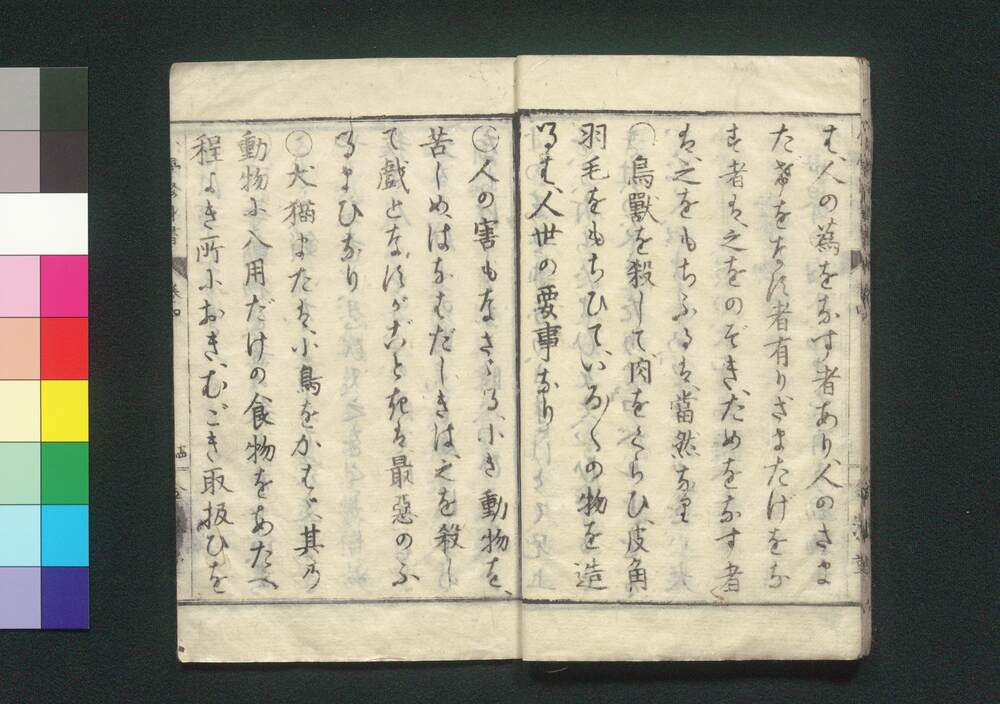 は、人の為をなす者あり人のさま
たげをなす者有りさまたげをな
す者は、之をのぞき、ためをなす者
は、之をもちふるは、當然なり
〇鳥獸を殺して、肉をくらひ、皮角
羽毛をもちひて、いろ〳〵の物を造
るは、人世の要事なり
〇人の害もなさゞる、小き動物を、
苦しめ、はなはだしきは、之を殺し
て戲となすがごときは最惡のふ
るまひなり
〇犬猫または、小鳥をかはゞ、其の
動物に入用だけの食物をあたへ
程よき所におき、むごき取扱ひを